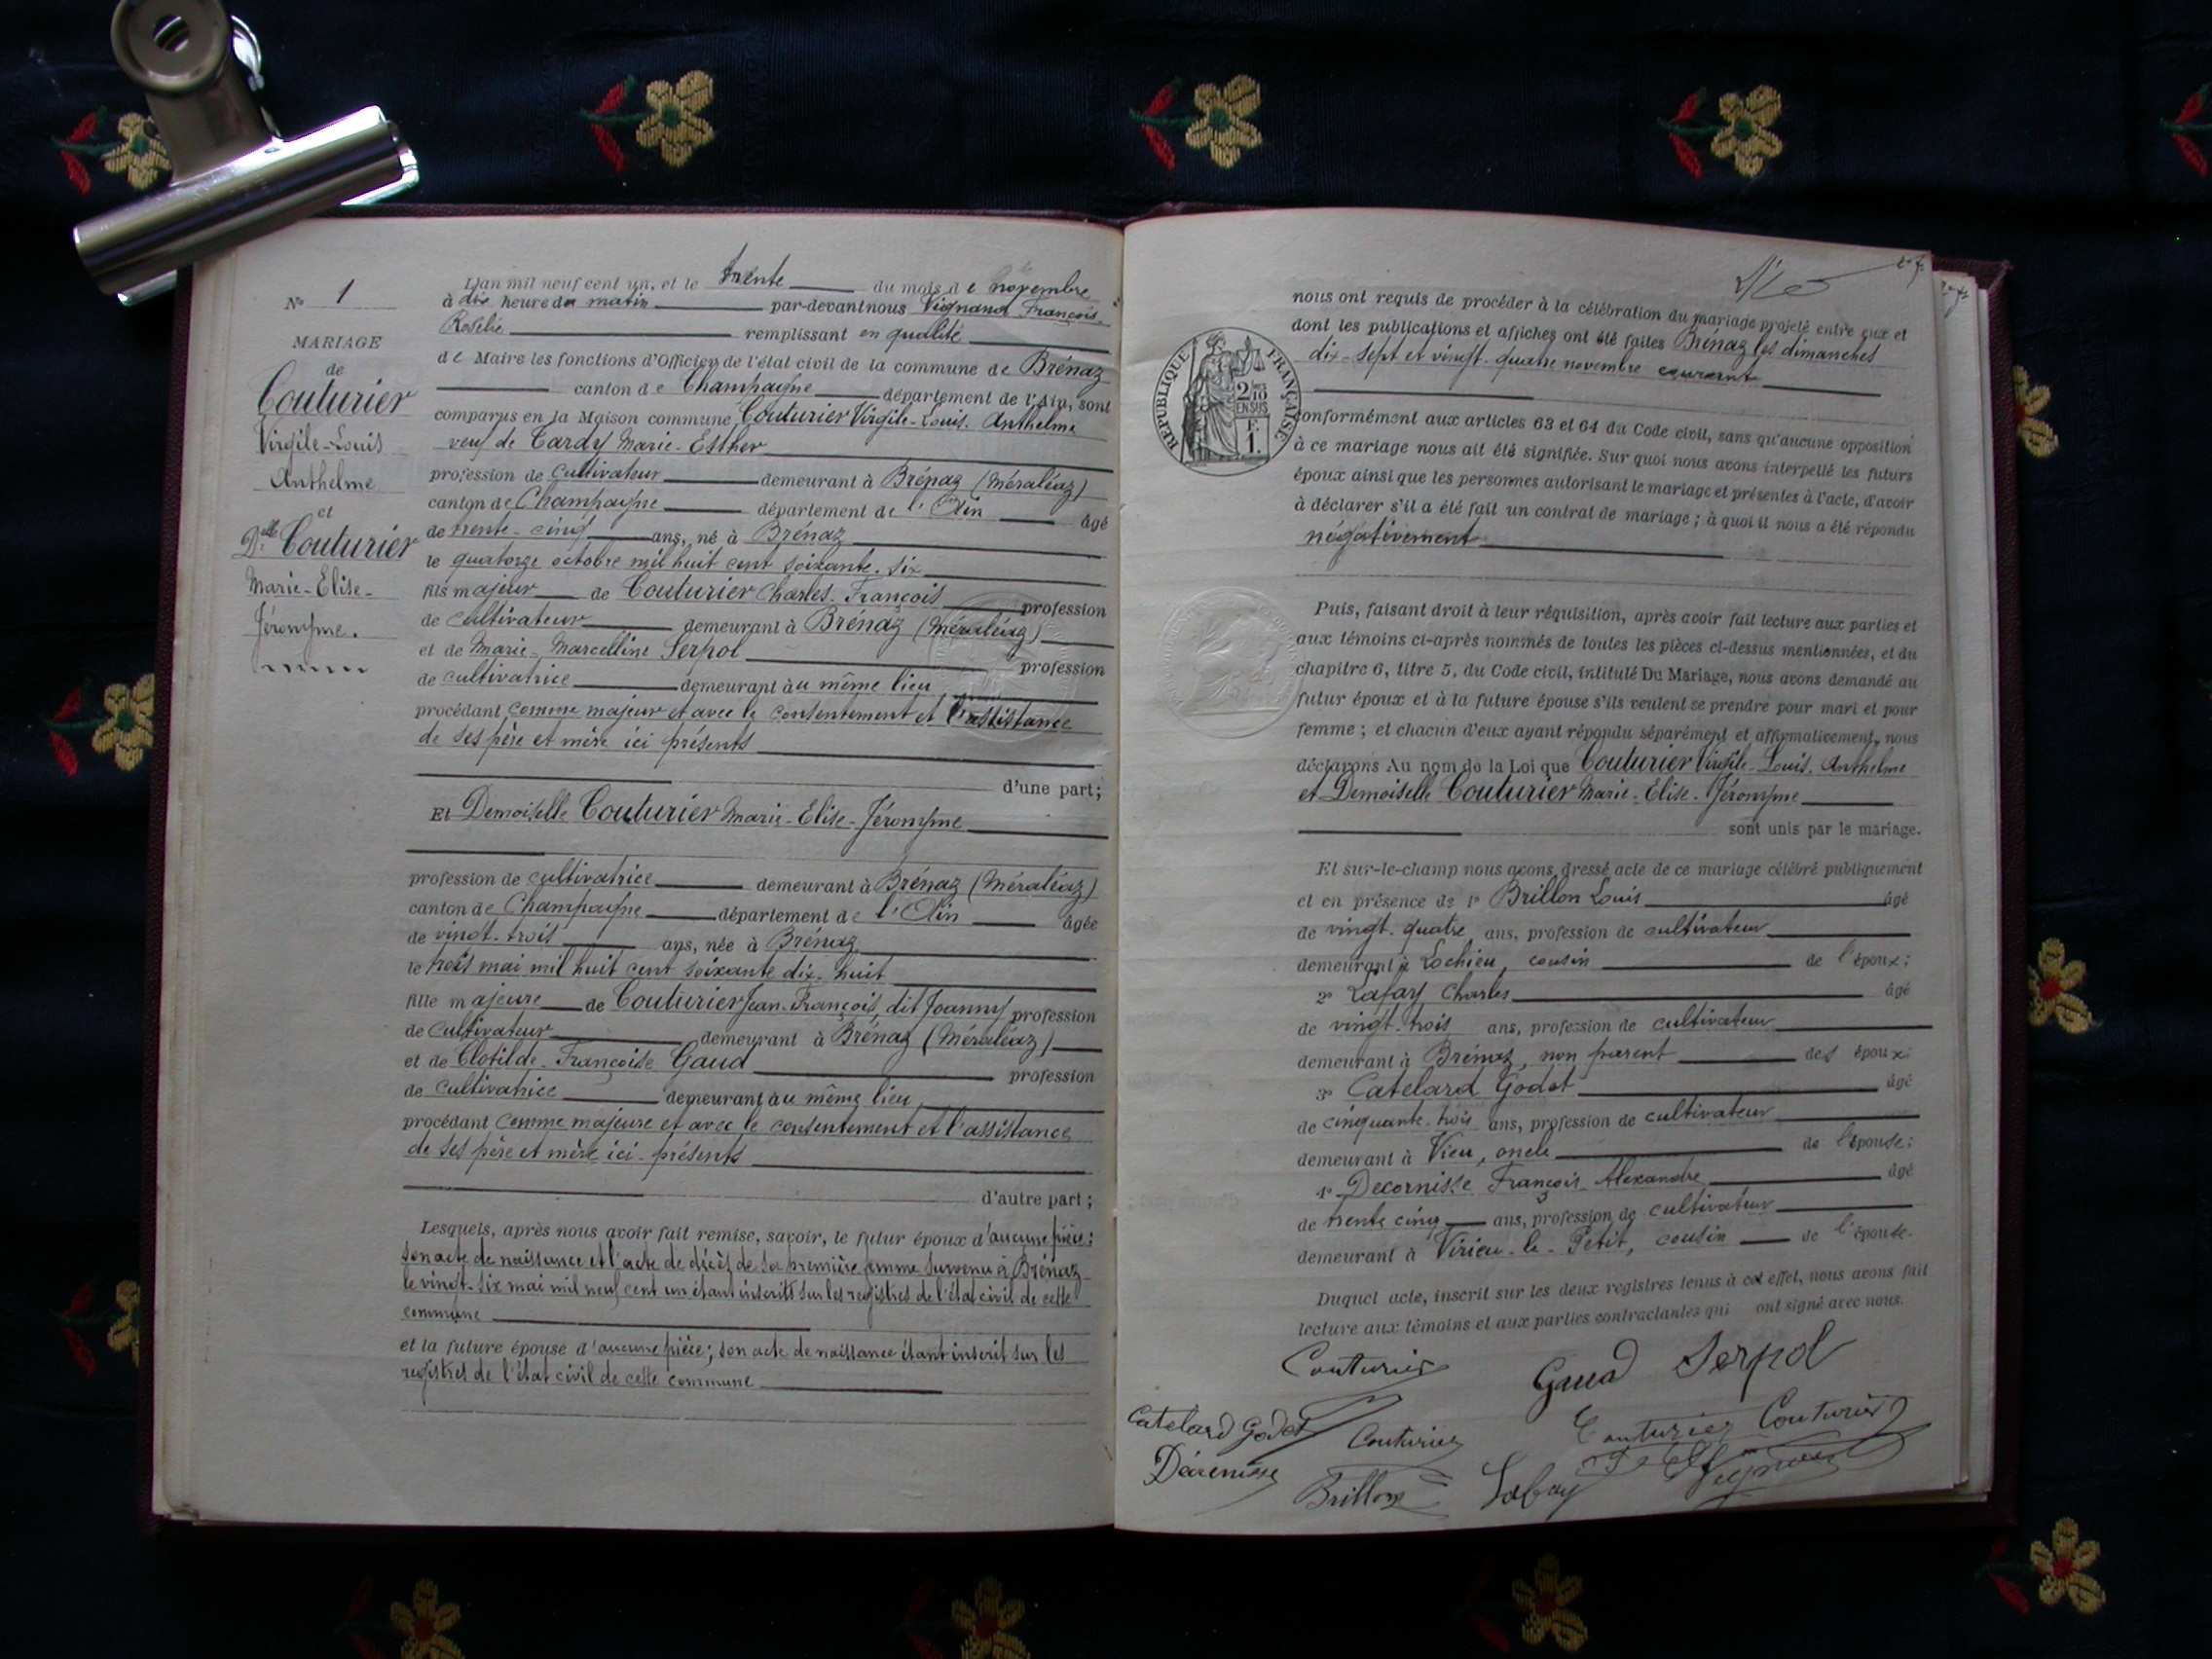 N° 1
MARIAGE
de
Couturier
Virgile-Louis
Anthelme
et
Dlle Couturier
Marie-Elise-
Jéronyme.
L'an mil neuf cent un, et le trente du mois de novembre
à dix heures du matin par-devant nous Vignand François
Rosélie remplissant en qualité
de Maire les fonctions d'Officier de l'état civil de la commune de Brénaz
canton de Champagne département de l'Ain, sont
comparus en la Maison commune Couturier Virgile-Louis. Anthelme
veuf de Tardy Marie-Esther
profession de cultivateur demeurant à Brénaz (Méraléaz)
canton de Champagne département de l'Ain âgé
de trente-cinq ans, né à Brénaz
le quatorze octobre mil huit cent soixante-six
fils majeur de Couturier Charles-François profession
de cultivateur demeurant à Brénaz (Méraléaz)
et de Marie-Marcelline Serpol profession
de cultivatrice demeurant au même lieu,
procédant comme majeur et avec le consentement et l'assistance
de ses père et mère ici présents
d'une part;
Et Demoiselle Couturier Marie-Elise-Jéronyme
profession de cultivatrice demeurant à Brénaz (Méraléaz)
canton de Champagne département de l'Ain âgée
de vingt-trois ans, née à Brénaz
le trois mai mil huit cent soixante dix-huit
fille majeure de Couturier Jean-François, dit Joanny profession
de cultivateur demeurant à Brénaz (Méraléaz)
et de Clotilde-Françoise Gaud profession
de cultivatrice demeurant au même lieu,
procédant comme majeure et avec le consentement et l'assistance
de ses père et mère ici-présents
d'autre part;
Lesquels, après nous avoir fait remise, savoir, le futur époux d'aucune pièce:
son acte de naissance et l'acte de décès de sa première femme survenu à Brénaz
le vingt-six mai mil neuf cent un étant inscrits sur les registres de l'état civil de cette
commune
et la future épouse d'aucune pièce; son acte de naissance étant inscrit sur les
registres de l'état civil de cette commune
nous ont requis de procéder à la célébration du mariage projeté entre eux et
dont les publications et affiches ont été faites Brénaz les dimanches
dix-sept et vingt-quatre novembre courant
RÉPUBLIQUE FRANÇAISE
2/10 EN SUS
F. 1.
conformément aux articles 63 et 64 du Code civil, sans qu'aucune opposition
à ce mariage nous ait été signifiée. Sur quoi nous avons interpellé les futurs
époux ainsi que les personnes autorisant le mariage et présentes à l'acte, d'avoir
à déclarer s'il a été fait un contrat de mariage; à quoi il nous a été répondu
négativement
Puis, faisant droit à leur réquisition, après avoir fait lecture aux parties et
aux témoins ci-après nommés de toutes les pièces ci-dessus mentionnées, et du
chapitre 6, titre 5, du Code civil, intitulé Du Mariage, nous avons demandé au
futur époux et à la future épouse s'ils veulent se prendre pour mari et pour
femme; et chacun d'eux ayant répondu séparément et affirmativement, nous
déclarons Au nom de la Loi que Couturier Virgile-Louis. Anthelme
et Demoiselle Couturier Marie-Elise-Jéronyme
sont unis par le mariage.
Et sur-le-champ nous avons dressé acte de ce mariage célébré publiquement
et en présence de 1° Brillon Louis âgé
de vingt-quatre ans, profession de cultivateur
demeurant à Lochieu, cousin de l'époux;
2° Lafay Charles âgé
de vingt-trois ans, profession de cultivateur
demeurant à Brénaz, non parent des époux;
3° Catelard Godet âgé
de cinquante-trois ans, profession de cultivateur
demeurant à Vieu, oncle de l'épouse;
4° Decornisse François-Alexandre âgé
de trente cinq ans, profession de cultivateur
demeurant à Virieu-le-Petit, cousin de l'épouse.
Duquel acte, inscrit sur les deux registres tenus à cet effet, nous avons fait
lecture aux témoins et aux parties contractantes qui ont signé avec nous.
Couturier Gaud Serpol
Catelard Godet Couturier Couturier Couturier
Brillon Lafay Vignand